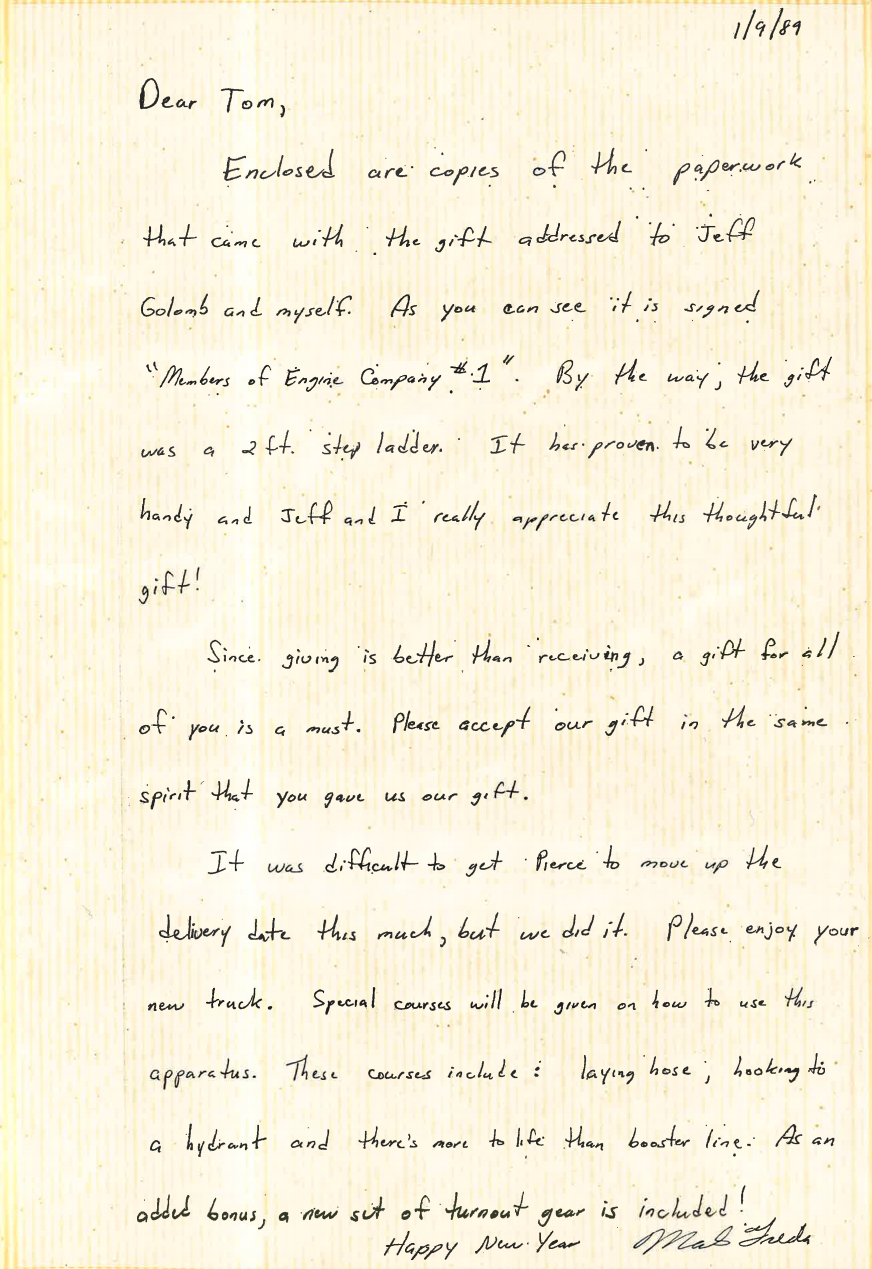 1/9/89
Dear Tom,
Enclosed are copies of the paperwork
that came with the gift addressed to Jeff
Golomb and myself. As you can see it is signed
"Members of Engine Company #1". By the way, the gift
was a 2 ft. step ladder. It has proven to be very
handy and Jeff and I really appreciate this thoughtful
gift!
Since giving is better than receiving, a gift for all
of you is a must. Please accept our gift in the same
spirit that you gave us our gift.
It was difficult to get Pierce to move up the
delivery date this much, but we did it. Please enjoy your
new truck. Special courses will be given on how to use this
apparatus. These courses include: laying hose, hooking to
a hydrant and there's more to life than booster line. As an
added bonus, a new set of turnout gear is included!
Happy New Year